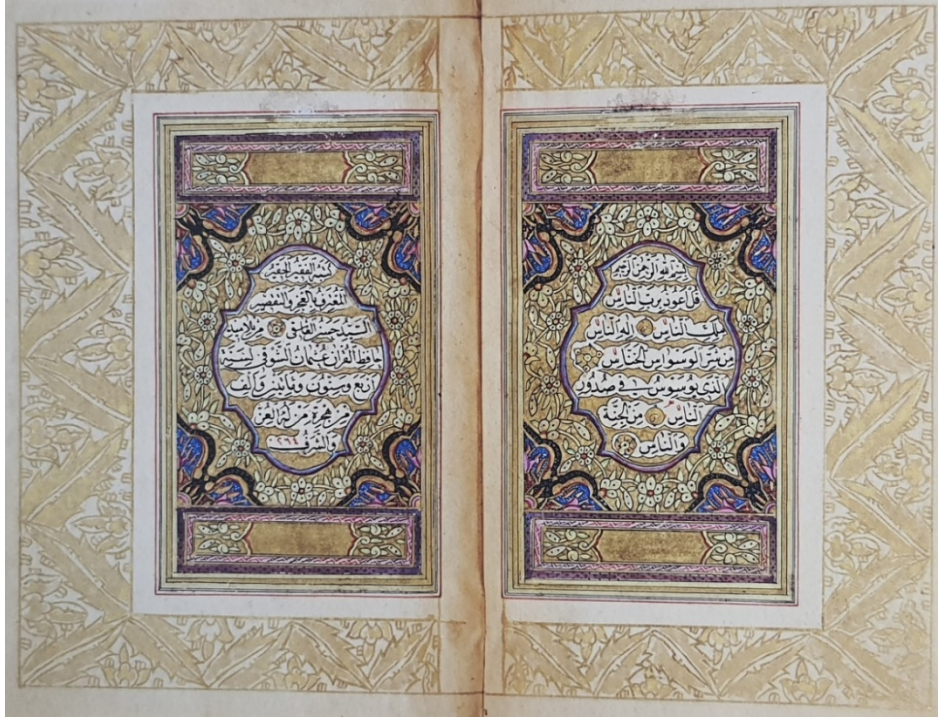 بِسْمِ اللهِ الرَّحْمٰنِ الرَّحِيمِ
قُلْ اَعُوذُ بِرَبِّ النَّاسِ
مَلِكِ النَّاسِ اِلٰهِ النَّاسِ
مِنْ شَرِّ الْوَسْوَاسِ الْخَنَّاسِ
الَّذِي يُوَسْوِسُ فِي صُدُورِ
النَّاسِ مِنَ الْجِنَّةِ
وَالنَّاسِ
كتبه الفقير الحقير
المعترف بالعجز والتقصير
السيد حسن من تلاميذ
حافظ القرآن عثمان الشوقي لسنة
اربع وستون ومائتين والف
من هجرة من له العز
والشرف ١٢٦٤